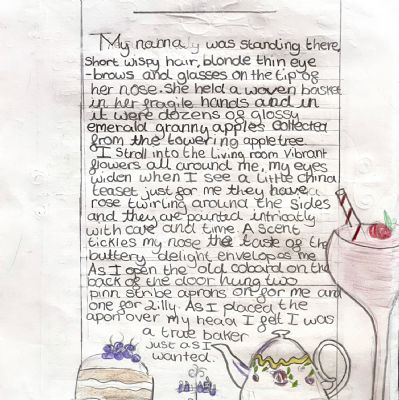 My nanna was standing there,
short wispy hair, blonde thin eye
-brows and glasses on the tip of
her nose. She held a woven basket
in her fragile hands and in
it were dozens of glossy
emerald granny apples collected
from the towering appletree.
I stroll into the living room vibrant
flowers all around me, my eyes
widen when I see a little china
teaset just for me they have a
rose twirling around the sides
and they are painted intricatly
with care and time. A scent
tickles my nose the taste of the
buttery delight envelopes me
As I open the old cobard on the
back of the door hung two
pinn stribe aprons on for me and
one for Jilly. As I placed the
apon over my head I felt I was
a true baker
just as I
wanted.